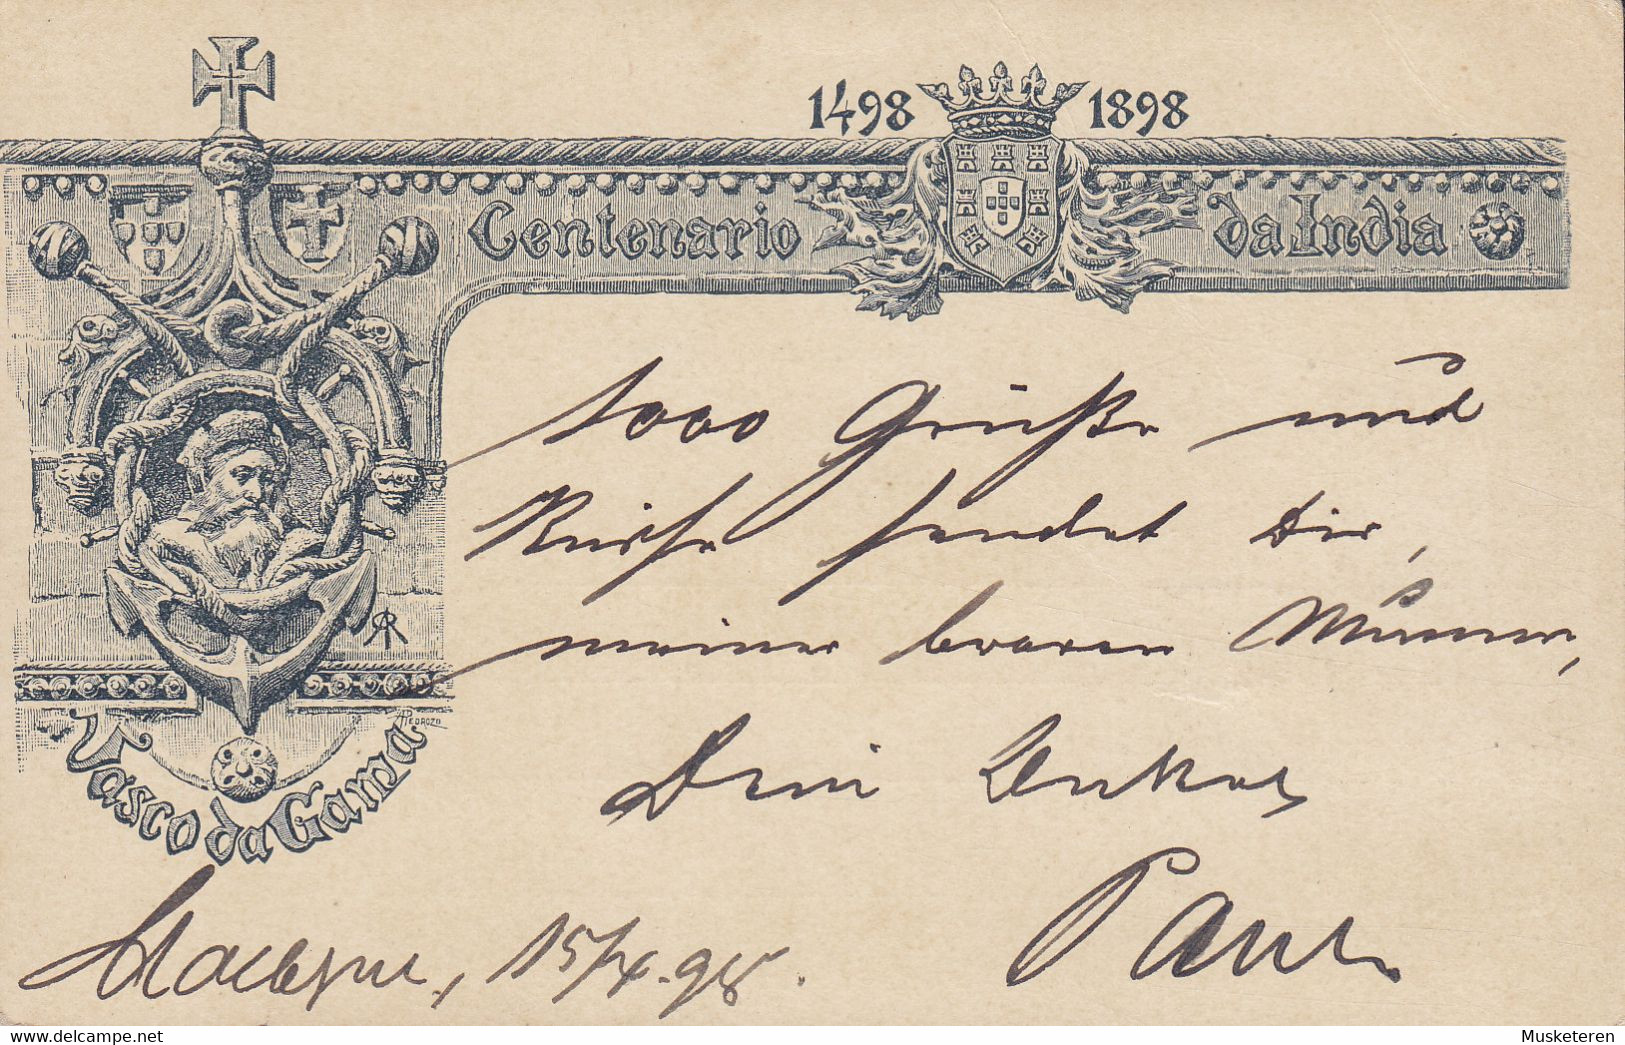 1498 1898
Centenario da India
1000 Grüße und
Küsse sendet Dir,
meiner braven
Dein
Paul
15/X. 98.
Vasco da Gama
PEDROZO
www.delcampe.net
Musketeren